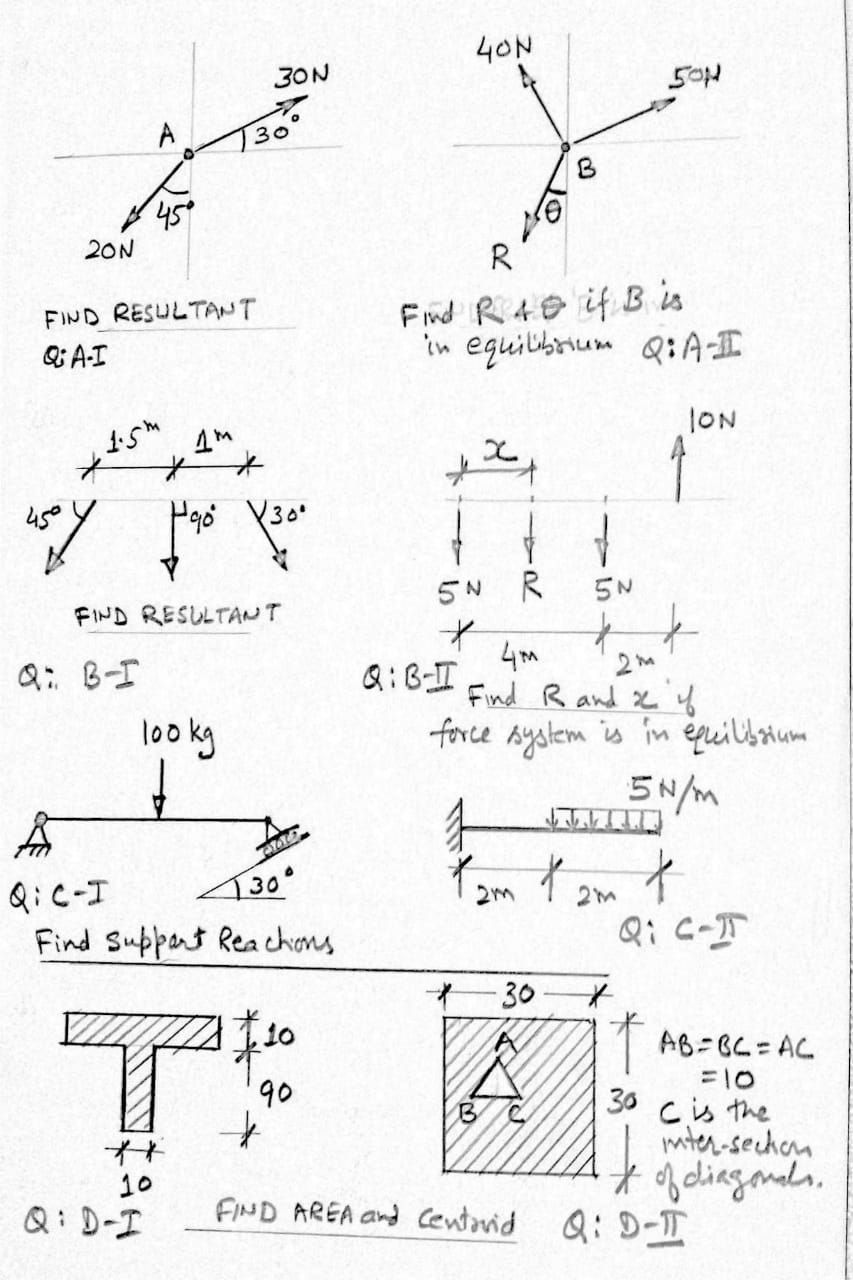 30N
A
30°
45°
20N
FIND RESULTANT
Q:A-I
40N
50N
B
θ
R
Find R & θ if B is
in equilibrium Q:A-II
1.5m 1m
45° 90° 30°
FIND RESULTANT
Q: B-I
10N
x
5N R 5N
4m 2m
Q:B-II Find R and x if
force system is in equilibrium
100 kg
30°
Q: C-I
5 N/m
2m 2m
Q: C-II
Find Support Reactions
10
90
10
Q: D-I
30
A
B C
30
AB=BC=AC
=10
C is the
inter-section
of diagonals.
FIND AREA and Centroid Q: D-II